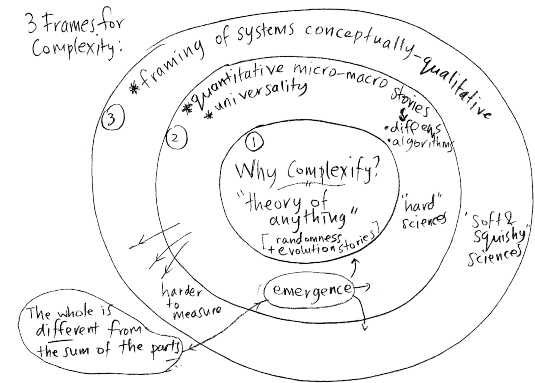 3 Frames for
Complexity:
* framing of systems conceptually-qualitative
3
* quantitative micro-macro stories
* universality
2
• diff eqns
• algorithms
1
Why Complexify?
"theory of
anything"
[randomness
+ evolution stories]
"hard"
sciences
"soft &
squishy"
sciences
harder
to
measure
emergence
The whole is
different from
the sum of the parts